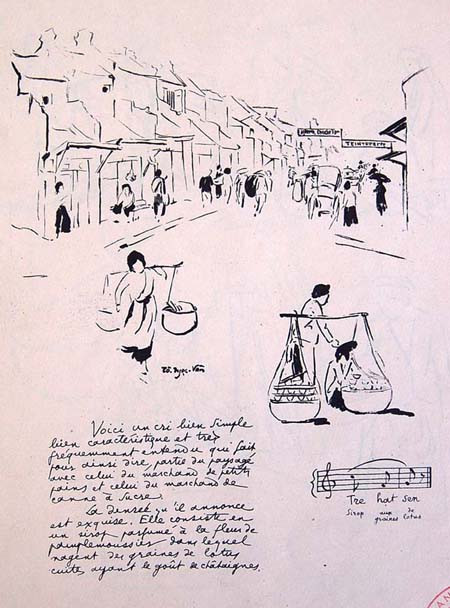 TEINTURERIE
Tô-Ngọc-Vân
Voici un cri bien simple
bien caractéristique et très
fréquemment entendu qui fait
pour ainsi dire, partie du paysage
avec celui du marchand de petits
pains et celui du marchand de
canne à sucre.
La denrée qu'il annonce
est exquise. Elle consiste en
un sirop parfumé à la fleur de
pamplemousses dans lequel
nagent des graines de lotus
cuites ayant le goût de châtaignes.
Tre hat sen
Sirop aux graines de lotus